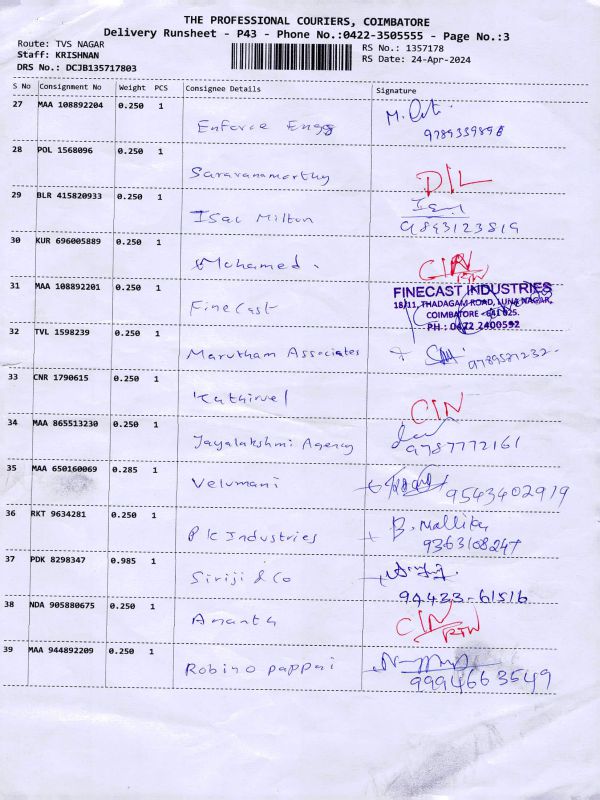 THE PROFESSIONAL COURIERS, COIMBATORE
Delivery Runsheet - P43 - Phone No.:0422-3505555 - Page No.:3
Route: TVS NAGAR
RS No.: 1357178
Staff: KRISHNAN
RS Date: 24-Apr-2024
DRS No.: DCJB135717803
S No Consignment No Weight PCS Consignee Details Signature
27 MAA 108892204 0.250 1
Enforce Engg
28 POL 1568096 0.250 1
Saravanamorthy DIL
29 BLR 415820933 0.250 1
Isac Milton 9893123819
30 KUR 696005889 0.250 1
Mohamed. CIN RTW
31 MAA 108892201 0.250 1
Finecast
FINECAST INDUSTRIES
18/11, THADAGAM ROAD, LUNA NAGAR,
COIMBATORE - 641 025.
PH : 0422 2400592
32 TVL 1598239 0.250 1
Marutham Associates
33 CNR 1790615 0.250 1
Kathirvel CIN
34 MAA 865513230 0.250 1
Jayalakshmi Agency 9787772161
35 MAA 650160069 0.285 1
Velumani 9543402919
36 RKT 9634281 0.250 1
PK Industries B. Mallika
9363108247
37 PDK 8298347 0.985 1
Siriji & Co
94423-61516
38 NDA 905880675 0.250 1
Ananth CIN RTW
39 MAA 944892209 0.250 1
Robino pappai 9994663549